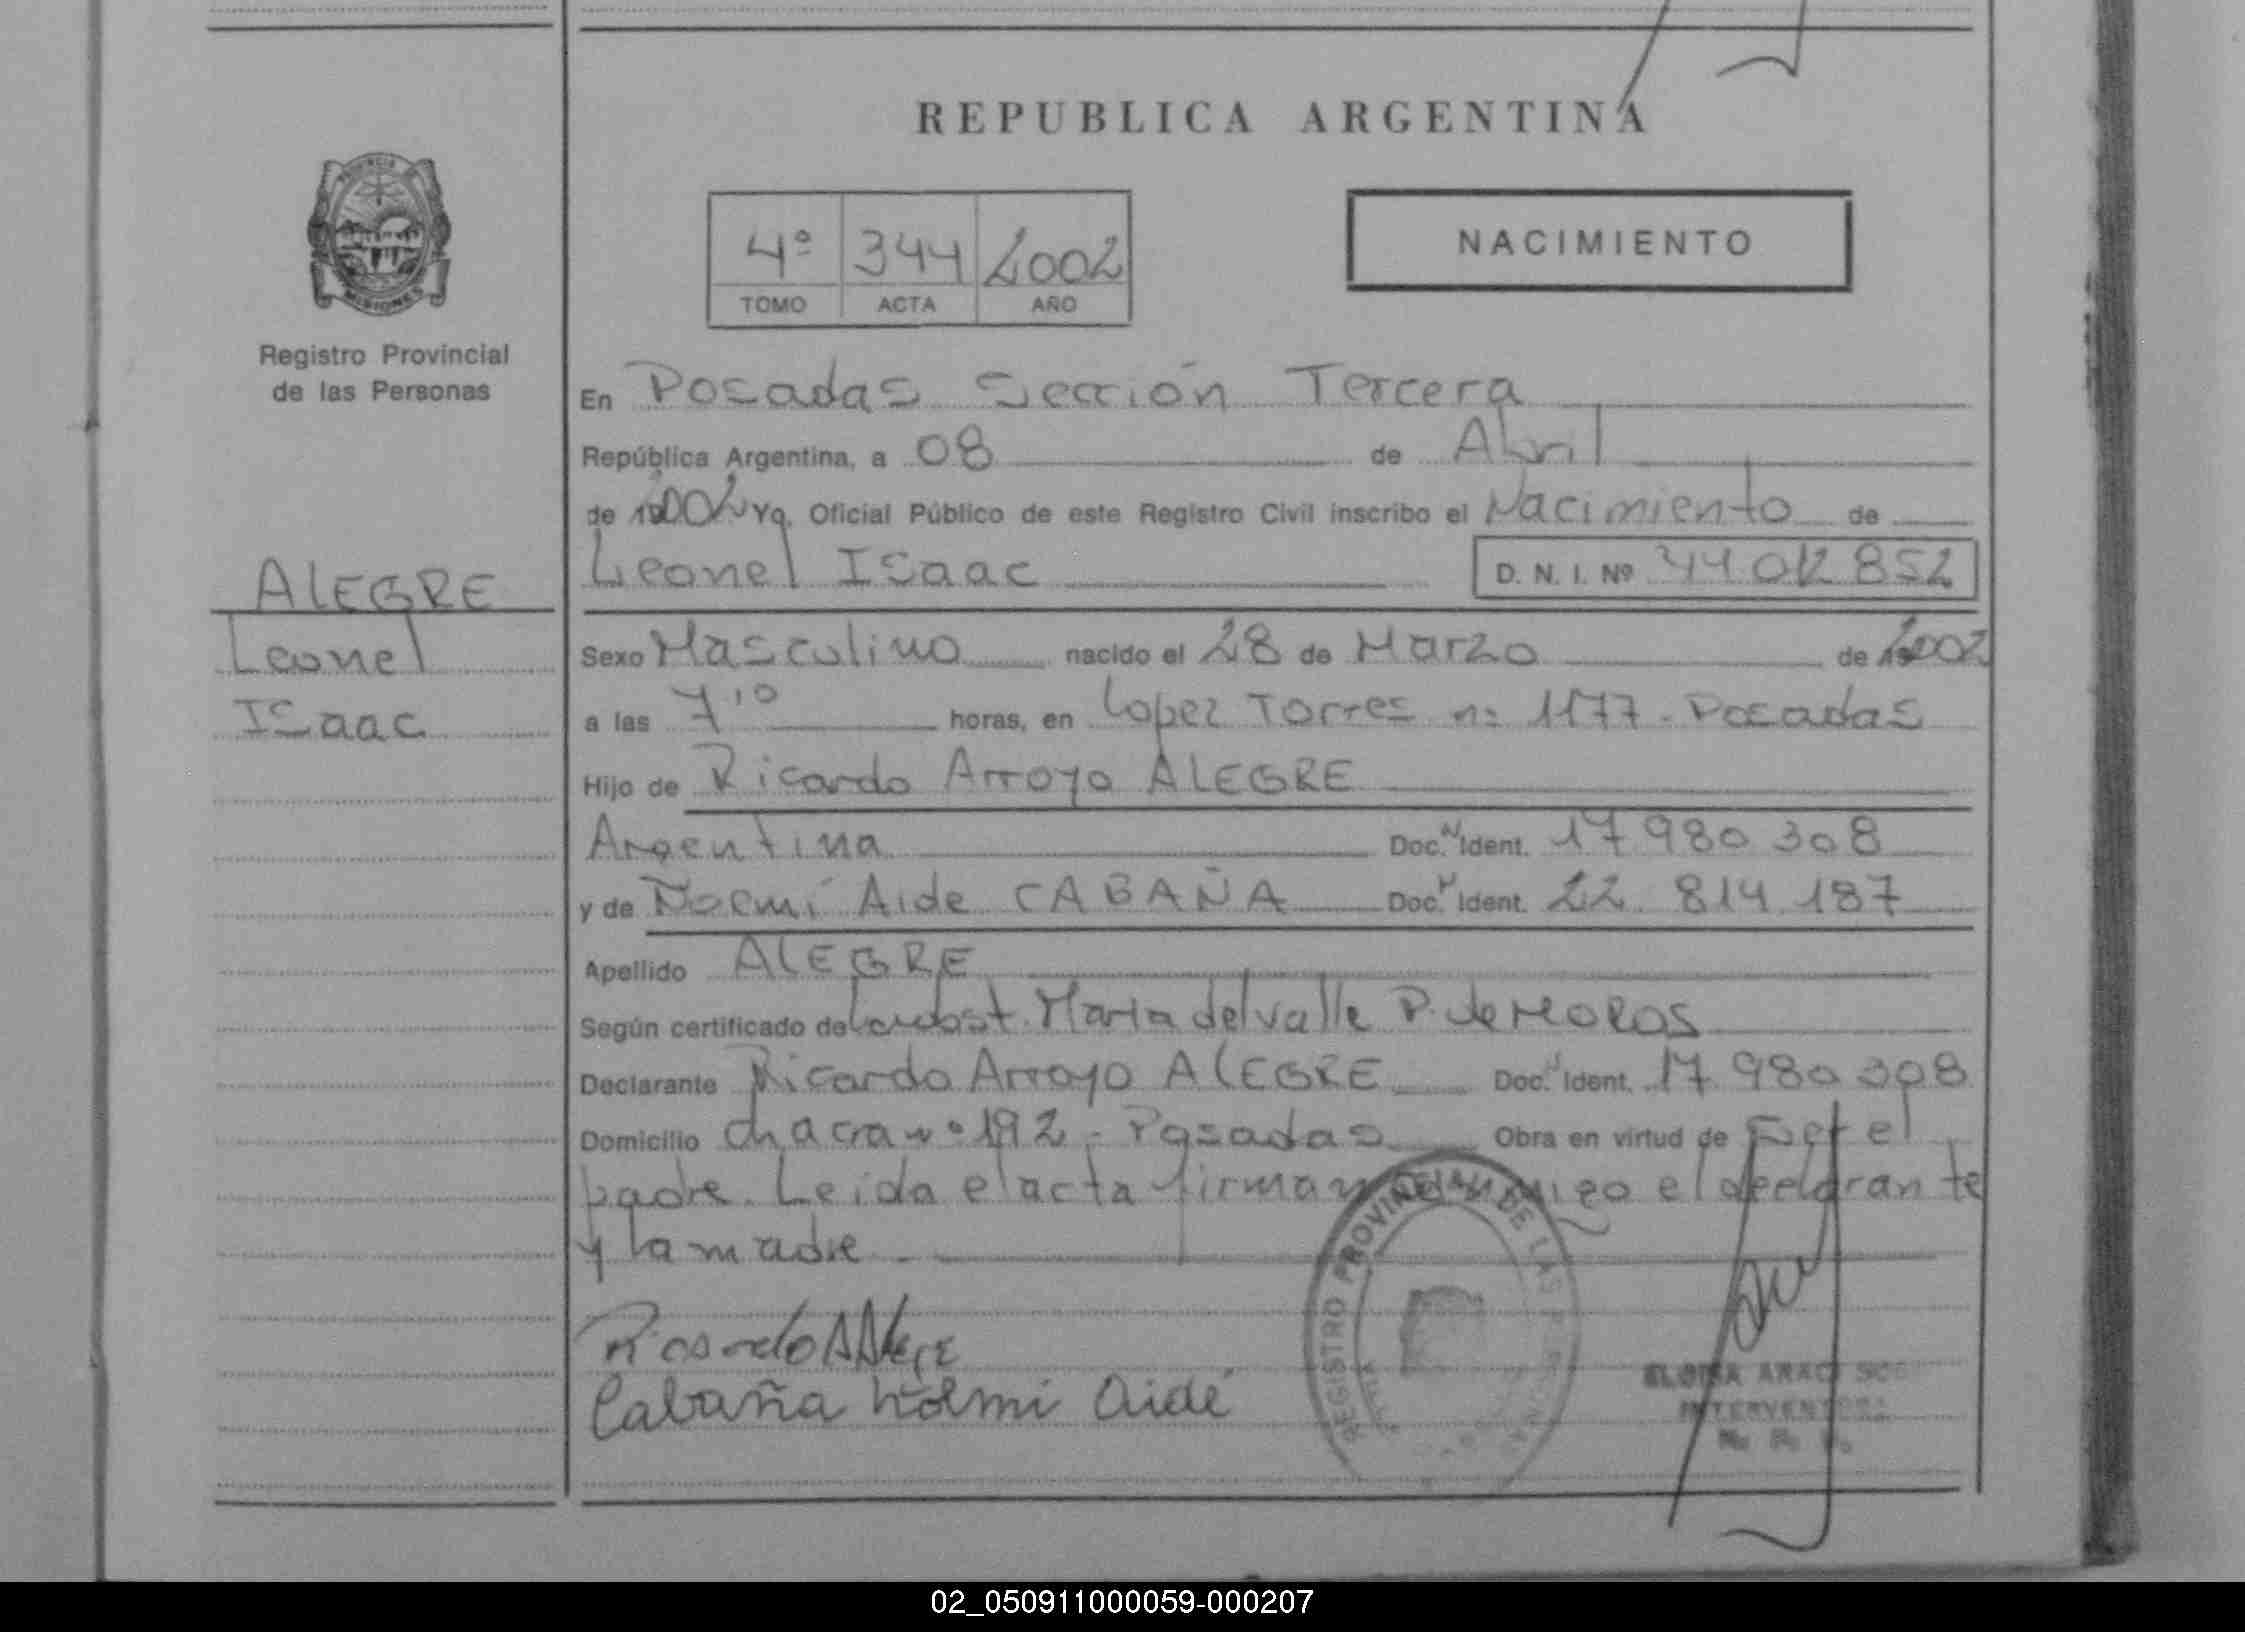 REPUBLICA ARGENTINA
PROVINCIA
MISIONES
Registro Provincial
de las Personas
4º 344 2002
TOMO ACTA AÑO
NACIMIENTO
En Posadas Sección Tercera
República Argentina, a 08 de Abril
de 2002 Yo, Oficial Público de este Registro Civil inscribo el Nacimiento de
Leonel Isaac D. N. I. Nº 44 012 852
ALEGRE
Leonel
Isaac
Sexo Masculino nacido el 28 de Marzo de 2002
a las 7,10 horas, en Lopez Torres nº 1177 - Posadas
Hijo de Ricardo Arroyo ALEGRE
Argentina Doc. N Ident. 17 980 308
y de Noemí Aide CABAÑA Doc. N Ident. 22 814 187
Apellido ALEGRE
Según certificado de la obst. Maria del valle P. de MOROS
Declarante Ricardo Arroyo ALEGRE Doc. N Ident. 17 980 308
Domicilio chacra nº 192 - Posadas Obra en virtud de Ser el
padre. Leida el acta firman conmigo el declarante
y la madre
REGISTRO PROVINCIAL DE LAS PERSONAS
Ricardo A Alegre
Cabaña Noemi Aidé
ELOISA
INTERVENTORA
02_050911000059-000207